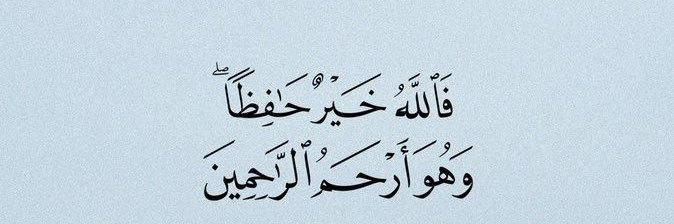 فَٱللَّهُ خَيْرٌ حَـٰفِظًۭا ۖ
وَهُوَ أَرْحَمُ ٱلرَّٰحِمِينَ